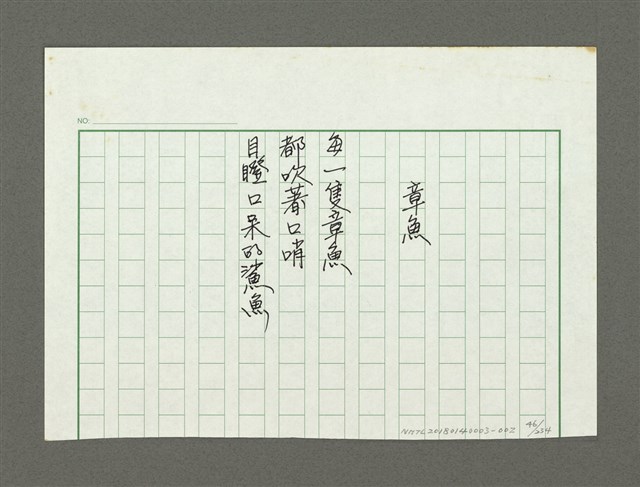 NO:
章魚
每一隻章魚
都吹著口哨
目瞪口呆的鯊魚
NMTL20180140003-002
46/234